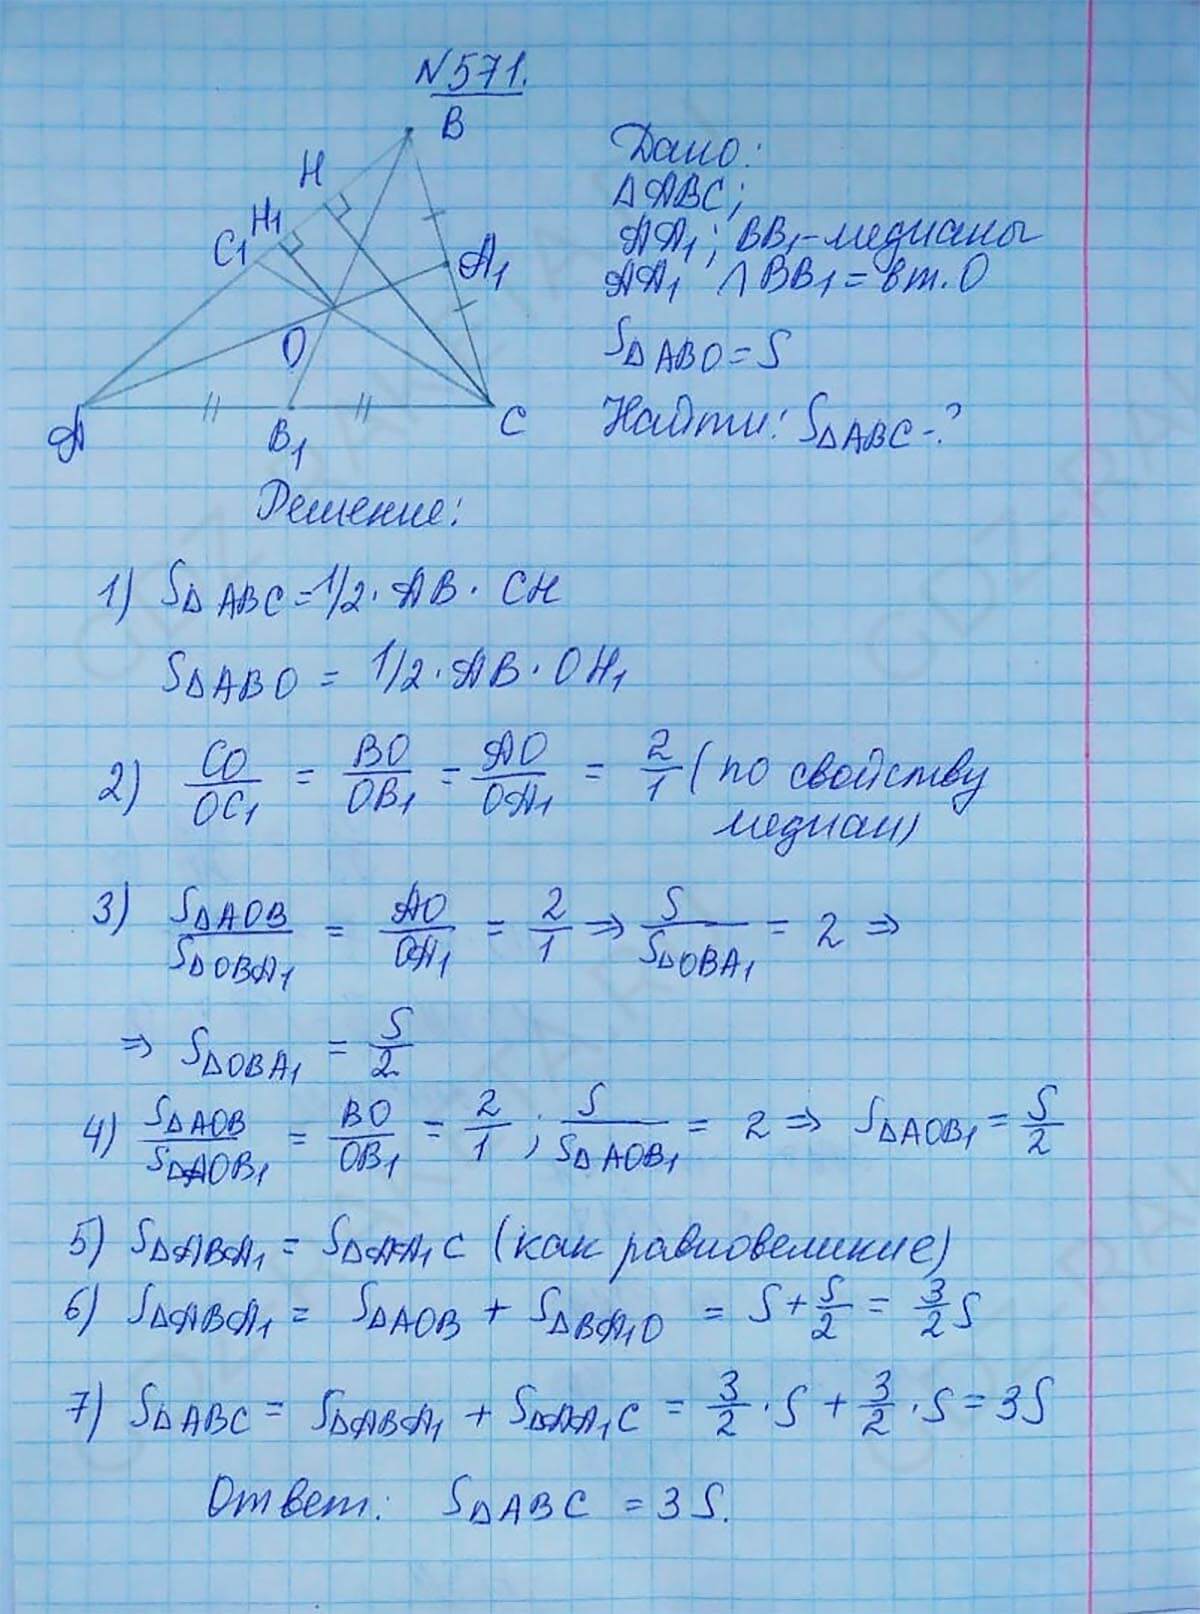 N571.
B
H
H1
C1
A1
O
A
B1
C
Дано:
ΔABC;
AA1; BB1-медианы
AA1 ∩ BB1 = в т. O
SΔABO = S
Найти: SΔABC-?
Решение:
1) SΔABC = 1/2 · AB · CH
SΔABO = 1/2 · AB · OH1
2) CO/OC1 = BO/OB1 = AO/OA1 = 2/1 (по свойству
медиан)
3) SΔAOB/SΔOBA1 = AO/OA1 = 2/1 ⇒ S/SΔOBA1 = 2 ⇒
⇒ SΔOBA1 = S/2
4) SΔAOB/SΔAOB1 = BO/OB1 = 2/1; S/SΔAOB1 = 2 ⇒ SΔAOB1 = S/2
5) SΔABA1 = SΔAA1C (как равновеликие)
6) SΔABA1 = SΔAOB + SΔBA1O = S + S/2 = 3/2 S
7) SΔABC = SΔABA1 + SΔAA1C = 3/2 · S + 3/2 · S = 3S
Ответ: SΔABC = 3S.